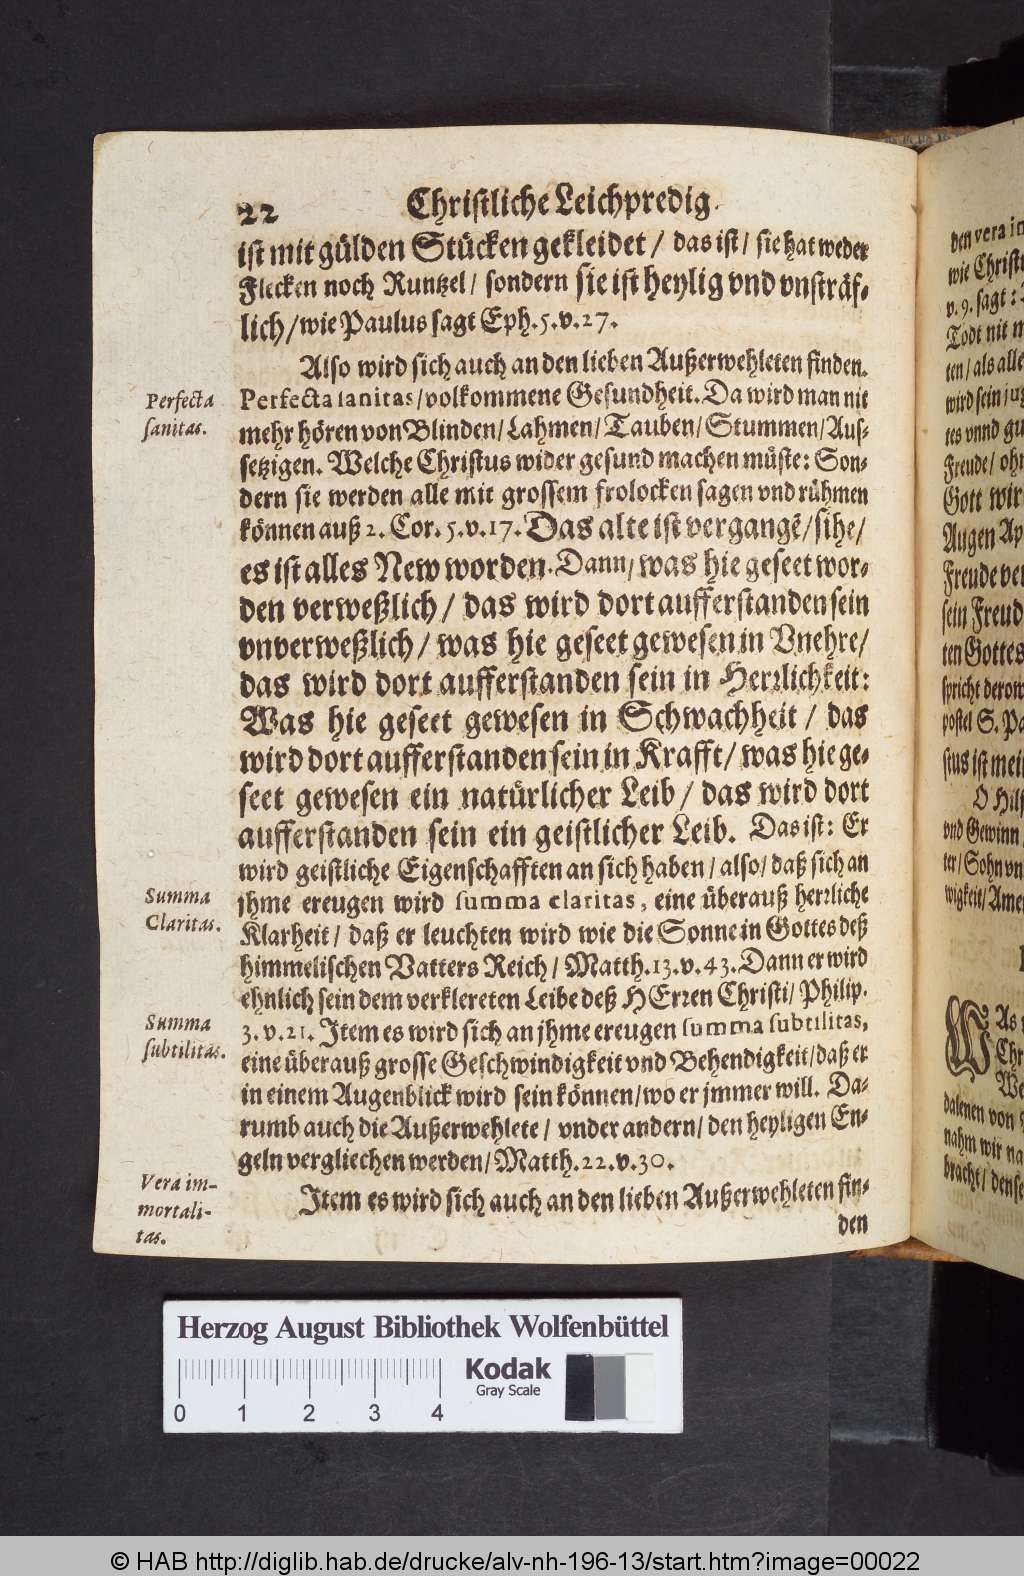 22 Christliche Leichpredig.
ist mit gülden Stücken gekleidet / das ist / sie hat weder
Flecken noch Runtzel / sondern sie ist heylig vnd vnsträf-
lich / wie Paulus sagt Eph. 5. v. 27.
Also wird sich auch an den lieben Außerwehleten finden.
Perfecta
sanitas.
Perfecta sanitas / volkommene Gesundheit. Da wird man nit
mehr hören von Blinden / Lahmen / Tauben / Stummen / Aus-
setzigen. Welche Christus wider gesund machen müste: Son-
dern sie werden alle mit grossem frolocken sagen vnd rühmen
können auß 2. Cor. 5. v. 17. Das alte ist vergangē / sihe /
es ist alles New worden. Dann / was hie geseet wor-
den verweßlich / das wird dort aufferstanden sein
vnverweßlich / was hie geseet gewesen in Vnehre /
das wird dort aufferstanden sein in Herrlichkeit:
Was hie geseet gewesen in Schwachheit / das
wird dort aufferstanden sein in Krafft / was hie ge-
seet gewesen ein natürlicher Leib / das wird dort
aufferstanden sein ein geistlicher Leib. Das ist: Er
wird geistliche Eigenschafften an sich haben / also / daß sich an
Summa
Claritas.
jhme ereugen wird summa claritas, eine überauß herrliche
Klarheit / daß er leuchten wird wie die Sonne in Gottes deß
himmelischen Vatters Reich / Matth. 13. v. 43. Dann er wird
ehnlich sein dem verklereten Leibe deß HErren Christi / Philip.
Summa
subtilitas.
3. v. 21. Item es wird sich an jhme ereugen summa subtilitas,
eine überauß grosse Geschwindigkeit vnd Behendigkeit / daß er
in einem Augenblick wird sein können / wo er jmmer will. Da-
rumb auch die Außerwehlete / vnder andern / den heyligen En-
geln vergliechen werden / Matth. 22. v. 30.
Vera im-
mortali-
tas.
Item es wird sich auch an den lieben Außerwehleten fin-
den
den vera
wie Christ
v. 9. sagt:
Todt nit
ten / als alle
wird sein
tes vnnd
Freude / ohn
Gott wir
Augen
Freude
sein Freud
ten Gottes
spricht
postel S.
stus ist
O
vnd Gewinn
ter / Sohn
wigkeit /
Was
Chr
We
dalenen von
nahm wir
bracht /
Herzog August Bibliothek Wolfenbüttel
Kodak
Gray Scale
0 1 2 3 4
© HAB http://diglib.hab.de/drucke/alv-nh-196-13/start.htm?image=00022